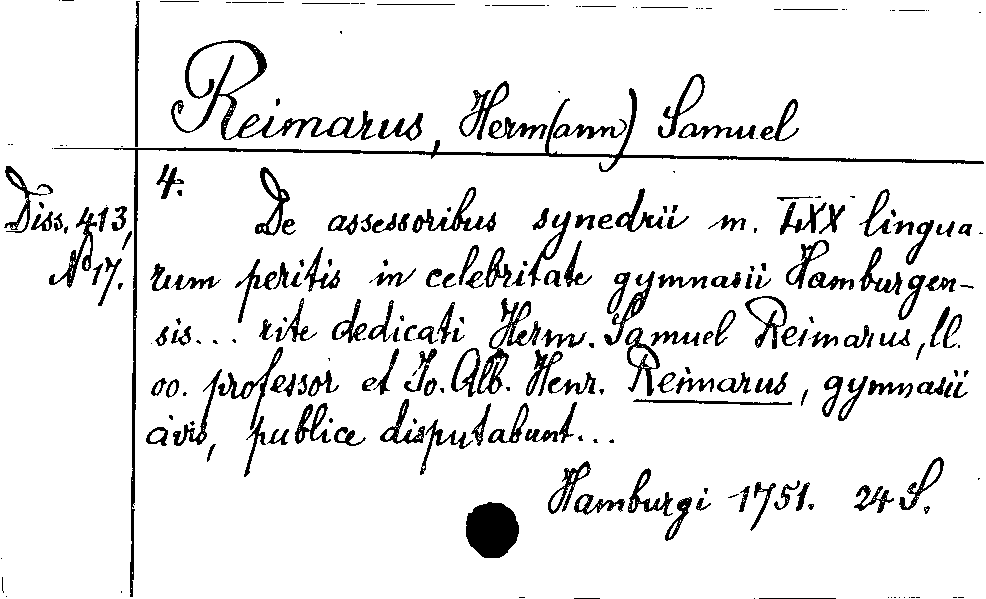 Reimarus, Herm(ann) Samuel
4.
Diss. 413,
No 17.
De assessoribus synedrii m. LXX lingua-
rum peritis in celebritate gymnasii Hamburgen-
sis... rite dedicati Herm. Samuel Reimarus, ll.
oo. professor et Jo. Alb. Henr. Reimarus, gymnasii
civis, publice disputabunt...
Hamburgi 1751. 24 S.